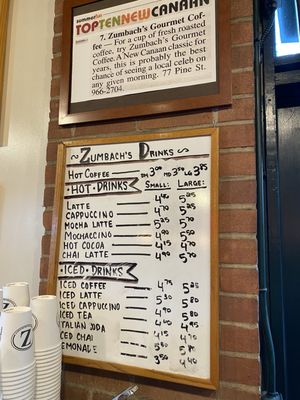 summer fun
TOPTENNEWCANAAN
7. Zumbach's Gourmet Cof-
fee - For a cup of fresh roasted
coffee, try Zumbach's Gourmet
Coffee. A New Canaan classic for
years, this is probably the best
chance of seeing a local celeb on
any given morning. 77 Pine St.
966-2704.
~ ZUMBACH'S DRINKS ~
HOT COFFEE SM. 3.00 MD. 3.50 LG 3.85
HOT · DRINKS SMALL: LARGE:
LATTE
CAPPUCCINO
MOCHA LATTE
MOCHACCINO
HOT COCOA
CHAI LATTE 4.90 5.70
ICED · DRINKS
ICED COFFEE 4.75
ICED LATTE 5.30
ICED CAPPUCCINO
ICED TEA
ITALIAN SODA
ICED CHAI
LEMONADE 3.50 4.40
Z
Z